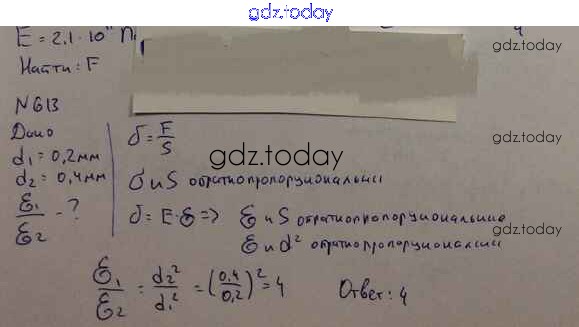 gdz.today
E = 2,1 · 10¹¹ П
4
gdz.today
Найти: F
gdz.today
N 613
Дано
d₁ = 0,2 мм
d₂ = 0,4 мм
ε₁/ε₂ - ?
σ = F/S
gdz.today
gdz.today
σ и S обратнопропорциональны
σ = E · ε => ε и S обратнопропорциональны
gdz.today
ε и d² обратнопропорциональны
ε₁/ε₂ = d₂²/d₁² = (0,4/0,2)² = 4
Ответ: 4
gdz.today